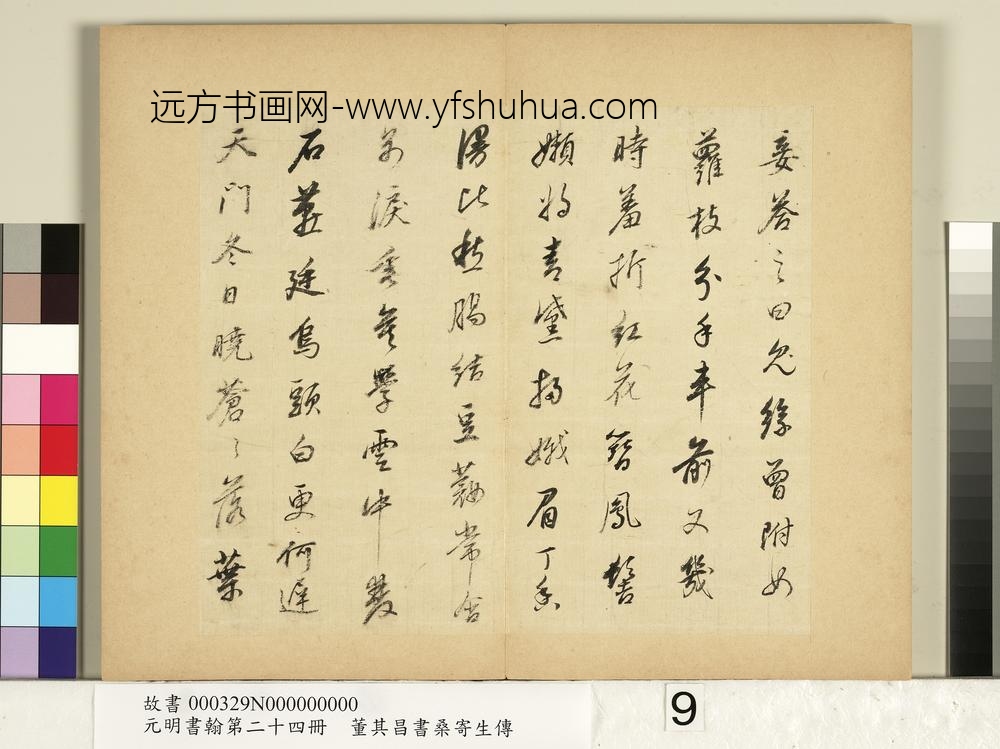 远方书画网-www.yfshuhua.com
妾荅之曰兔絲曾附女
蘿枝分手車前又幾
時羞折紅花簪鳳髻
嬾將青黛掃娥眉丁香
漫比愁腸結豆蔻常含
淚垂學雲中雙
石燕廷烏頭白更何遲
天門冬日曉蒼〻落葉
故書 000329N000000000
元明書翰第二十四冊 董其昌書桑寄生傳
9